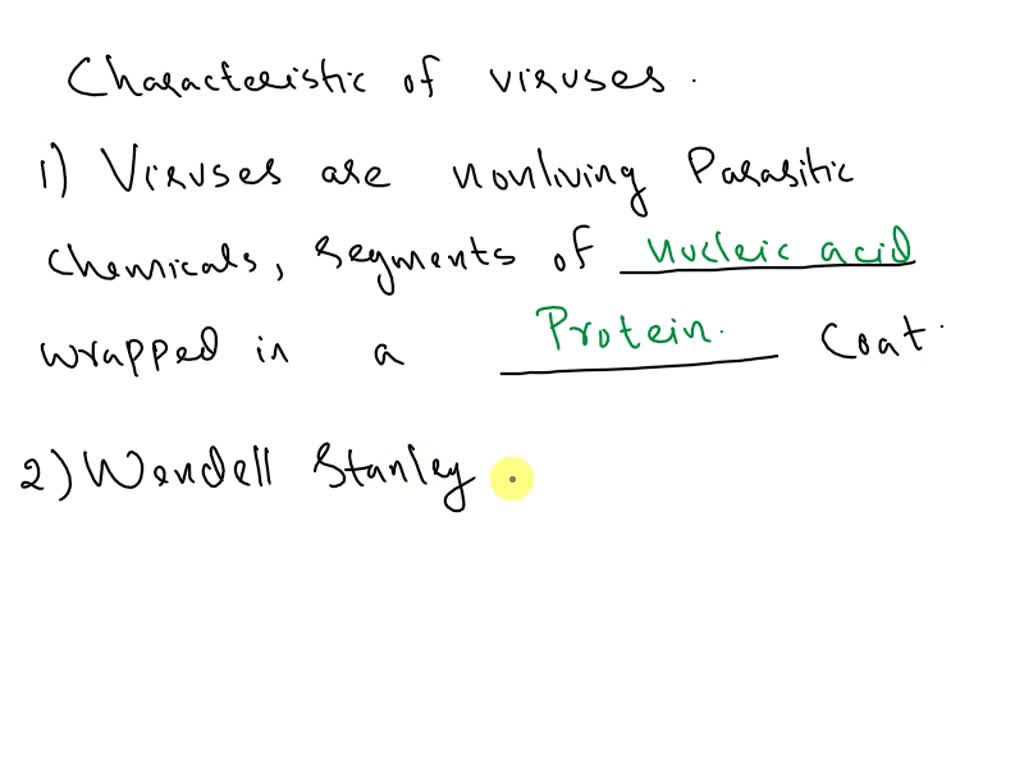 Characteristic of viruses.
1) Viruses are nonliving Parasitic
chemicals, segments of nucleic acid
wrapped in a Protein. Coat.
2) Wendell Stanley